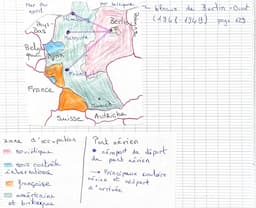 Mer du
nord
Mer baltique
blocus de Berlin-Ouest
(1948 1949) page 129
Pays-
Bas
Berlin
Belgique
France
Suisse
Autriche
zone d'occupation
soviétique
sous contrôle
internationale
française
américaine
et britannique
Pont aérien
aéroport de départ
du pont aérien
Principaux couloirs
aérien et aéroport
d'arrivée